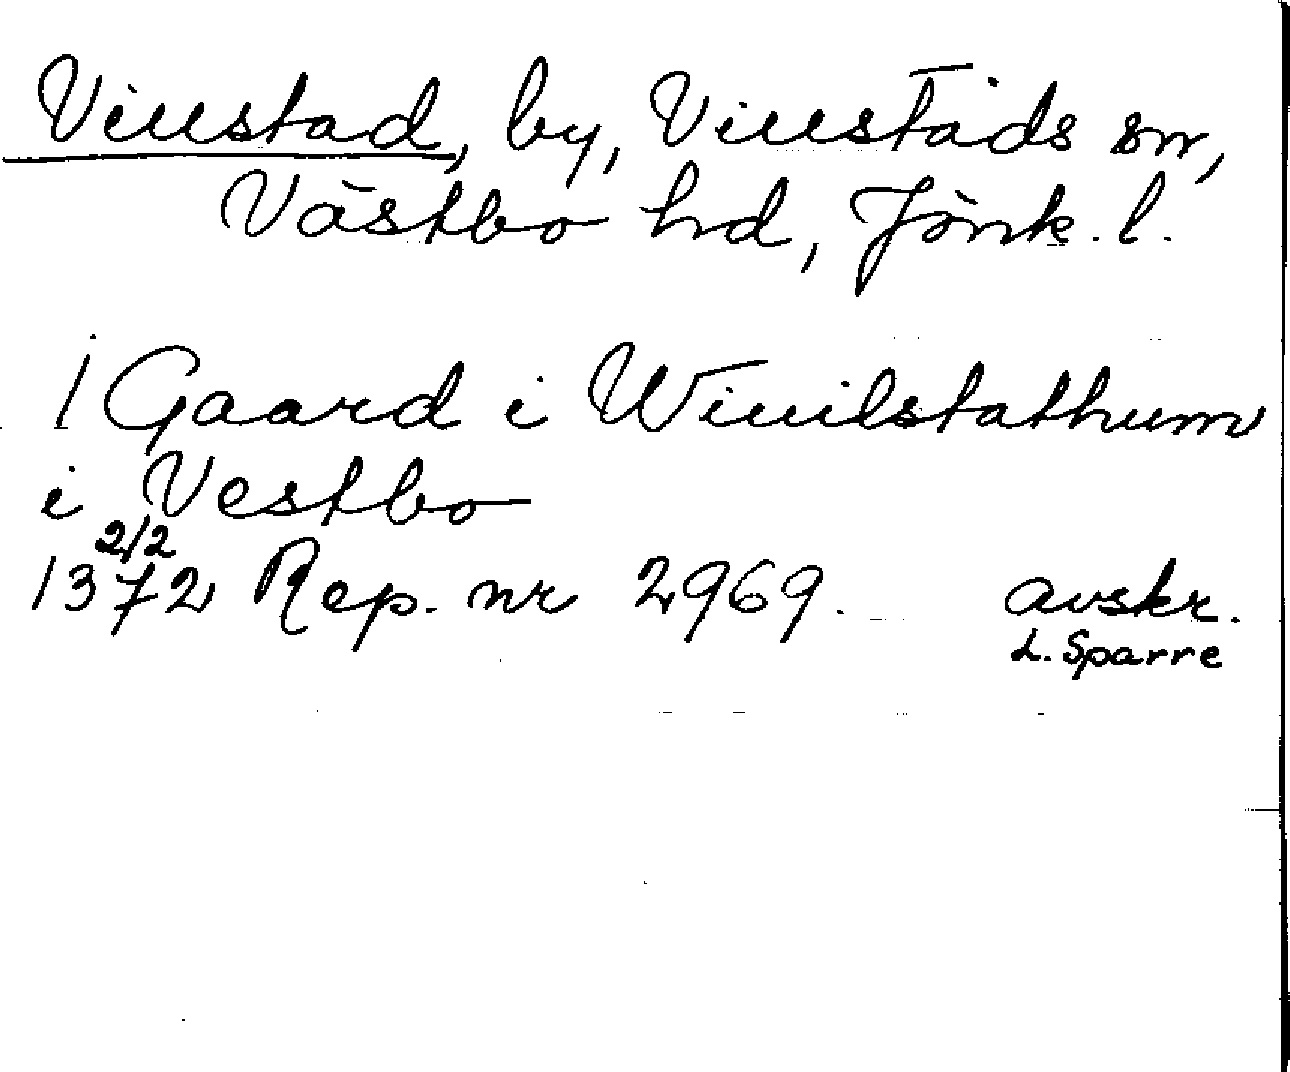 Villstad, by, Villstads sn,
Västbo hd, Jönk. l.
1 Gaard i Wiuilstathum
i Vestbo
1372 2/2 Rep. nr 2969. avskr.
L. Sparre